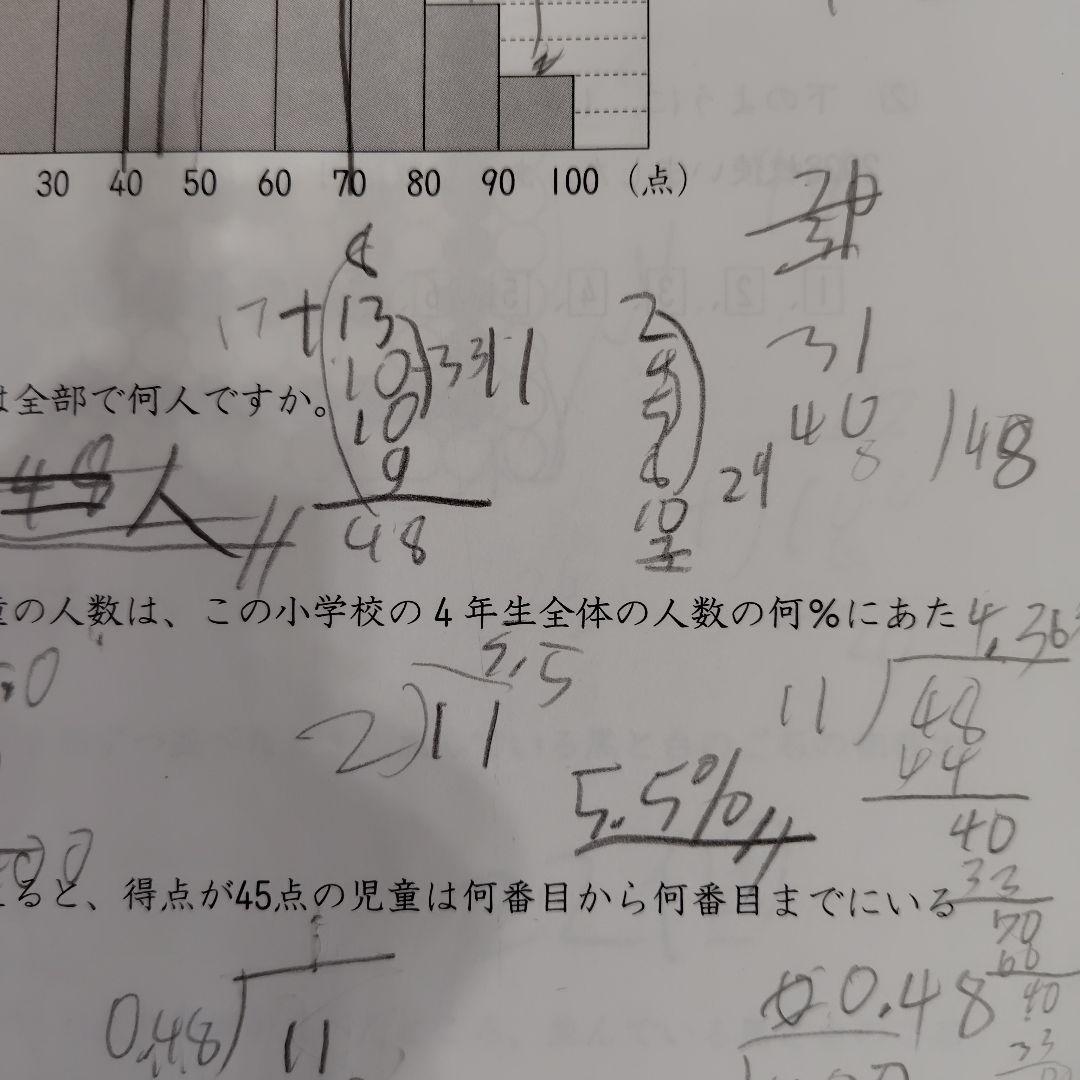 30 40 50 60 70 80 90 100 (点)
13
17+
10
33
11
2
31
は全部で何人ですか。
10
5
40
8
9
6
24
148
人
48
10
童の人数は、この小学校の4年生全体の人数の何%にあた
4.36
5.5
2)11
11)48
44
5.5%
40
ると、得点が45点の児童は何番目から何番目までにいる
33
70
66
40
0.48)11
0.48
33